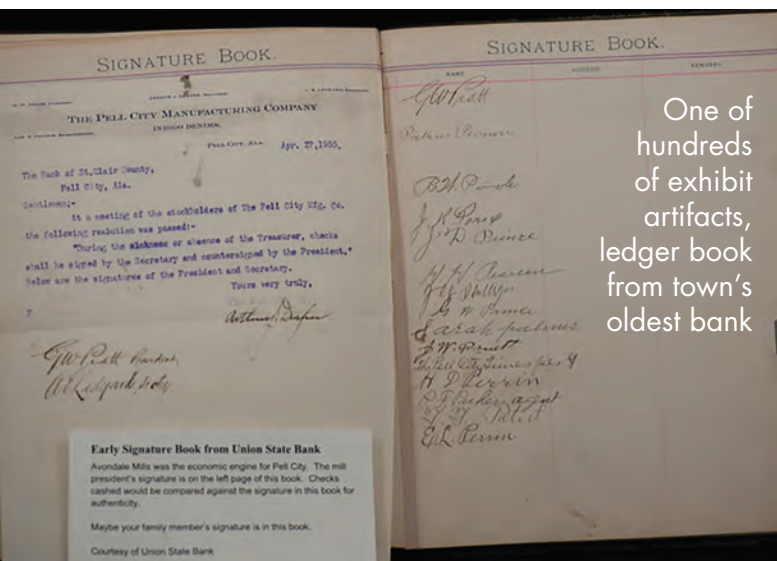 SIGNATURE BOOK.
THE PELL CITY MANUFACTURING COMPANY
INDIGO DENIMS.
PELL CITY, ALA. Apr. 27, 1905,
The Bank of St.Clair County,
Pell City, Ala.
Gentlemen;-
At a meeting of the stockholders of The Pell City Mfg. Co.
the following resolution was passed:-
"During the sickness or absence of the Treasurer, checks
shall be signed by the Secretary and countersigned by the President."
Below are the signatures of the President and Secretary.
Yours very truly,
Arthur J. Draper
GW Pratt President
Early Signature Book from Union State Bank
Avondale Mills was the economic engine for Pell City. The mill
president's signature is on the left page of this book. Checks
cashed would be compared against the signature in this book for
authenticity.
Maybe your family member's signature is in this book.
Courtesy of Union State Bank
SIGNATURE BOOK.
NAME ADDRESS REMARKS
GW Pratt
J D Prince
Sarah
The Pell City Times
H D Perrin
agent
Ed L Perrin
One of
hundreds
of exhibit
artifacts,
ledger book
from town's
oldest bank